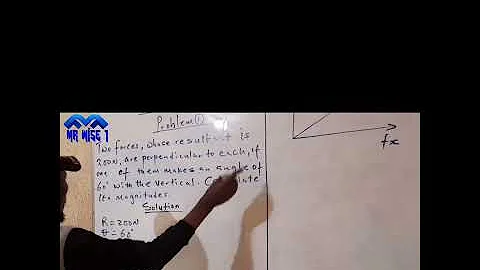 MR WISE 1
Problem ①
Two forces, whose resultant is
200N, are perpendicular to each, if
one of them makes an angle of
60° with the vertical. Calculate
its magnitudes.
Solution
R = 200N
θ = 60°
fx